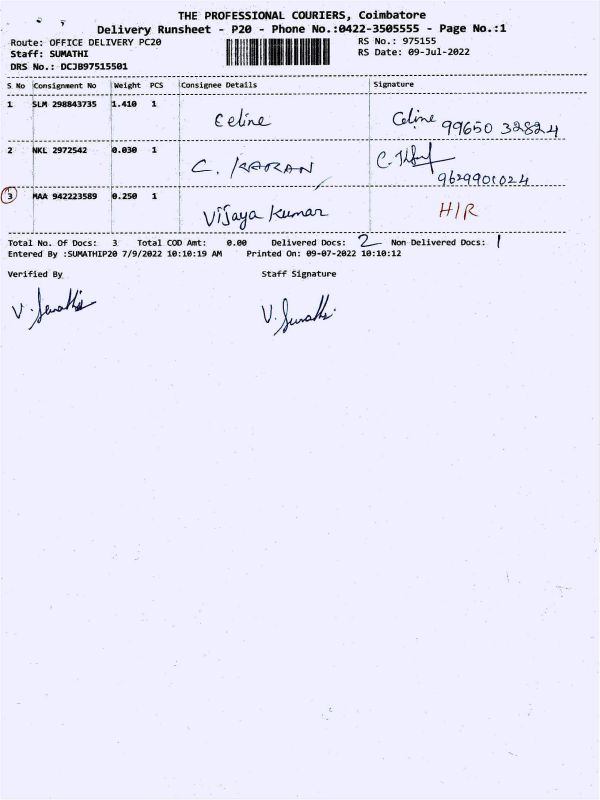 THE PROFESSIONAL COURIERS, Coimbatore
Delivery Runsheet - P20 - Phone No.:0422-3505555 - Page No.:1
Route: OFFICE DELIVERY PC20 RS No.: 975155
Staff: SUMATHI RS Date: 09-Jul-2022
DRS No.: DCJB97515501
S No Consignment No Weight PCS Consignee Details Signature
1 SLM 298843735 1.410 1 Celine Celine 99650 32824
2 NKL 2972542 0.030 1 C. KARAN C. 9629901024
3 MAA 942223589 0.250 1 Vijaya Kumar H/R
Total No. Of Docs: 3 Total COD Amt: 0.00 Delivered Docs: 2 Non Delivered Docs: 1
Entered By :SUMATHIP20 7/9/2022 10:10:19 AM Printed On: 09-07-2022 10:10:12
Verified By Staff Signature
V. Sumathi V. Sumathi